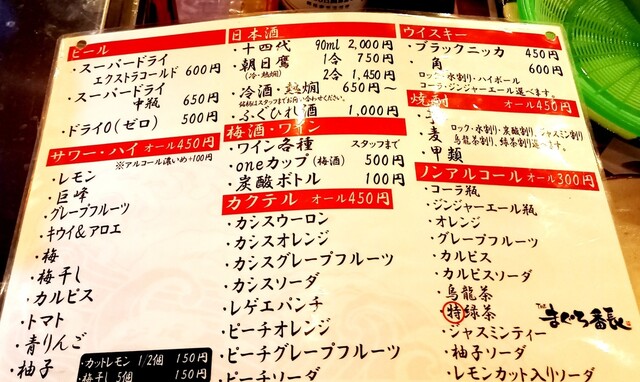 ビール
・スーパードライ
エクストラコールド 600円
・スーパードライ
中瓶 650円
・ドライ0(ゼロ) 500円
サワー・ハイ オール450円
※アルコール濃いめ+100円
・レモン
・巨峰
・グレープフルーツ
・キウイ&アロエ
・梅
・梅干し
・カルピス
・トマト
・青りんご
・柚子
・カットレモン 1/2個 150円
・梅干し 5個 150円
日本酒
・十四代 90ml 2,000円
・朝日鷹 1合 750円
(冷・熱燗) 2合 1,450円
・冷酒・熱燗 650円~
銘柄はスタッフまでお問い合わせください。
・ふぐひれ酒 1,000円
梅酒・ワイン
・ワイン各種 スタッフまで
・oneカップ(梅酒) 500円
・炭酸ボトル 100円
カクテル オール450円
・カシスウーロン
・カシスオレンジ
・カシスグレープフルーツ
・カシスソーダ
・レゲエパンチ
・ピーチオレンジ
・ピーチグレープフルーツ
・ピーチソーダ
ウイスキー
・ブラックニッカ 450円
・角 600円
ロック・水割り・ハイボール
コーラ・ジンジャーエール選べます。
焼酎 オール450円
・麦
・甲類
ロック・水割り・炭酸割り、ジャスミン割り
烏龍茶割り、緑茶割り選べます。
ノンアルコール オール300円
・コーラ瓶
・ジンジャーエール瓶
・オレンジ
・グレープフルーツ
・カルピス
・カルピスソーダ
・烏龍茶
・特緑茶
・ジャスミンティー
・柚子ソーダ
・レモンカット入りソーダ
The まぐろ番長